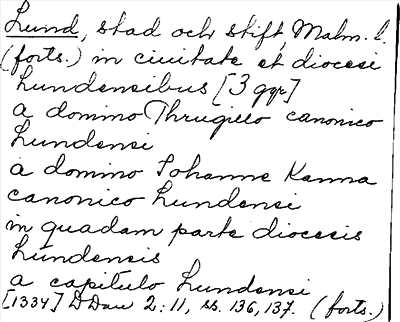 Lund, stad och stift, Malm. l.
(forts.) in ciuitate et diocesi
Lundensibus [3 ggr]
a domino Thrugillo canonico
Lundensi
a domino Johanne Kanna
canonico Lundensi
in quadam parte diocesis
Lundensis
a capitulo Lundensi
[1334] DDan 2:11, ss. 136, 137. (forts.)